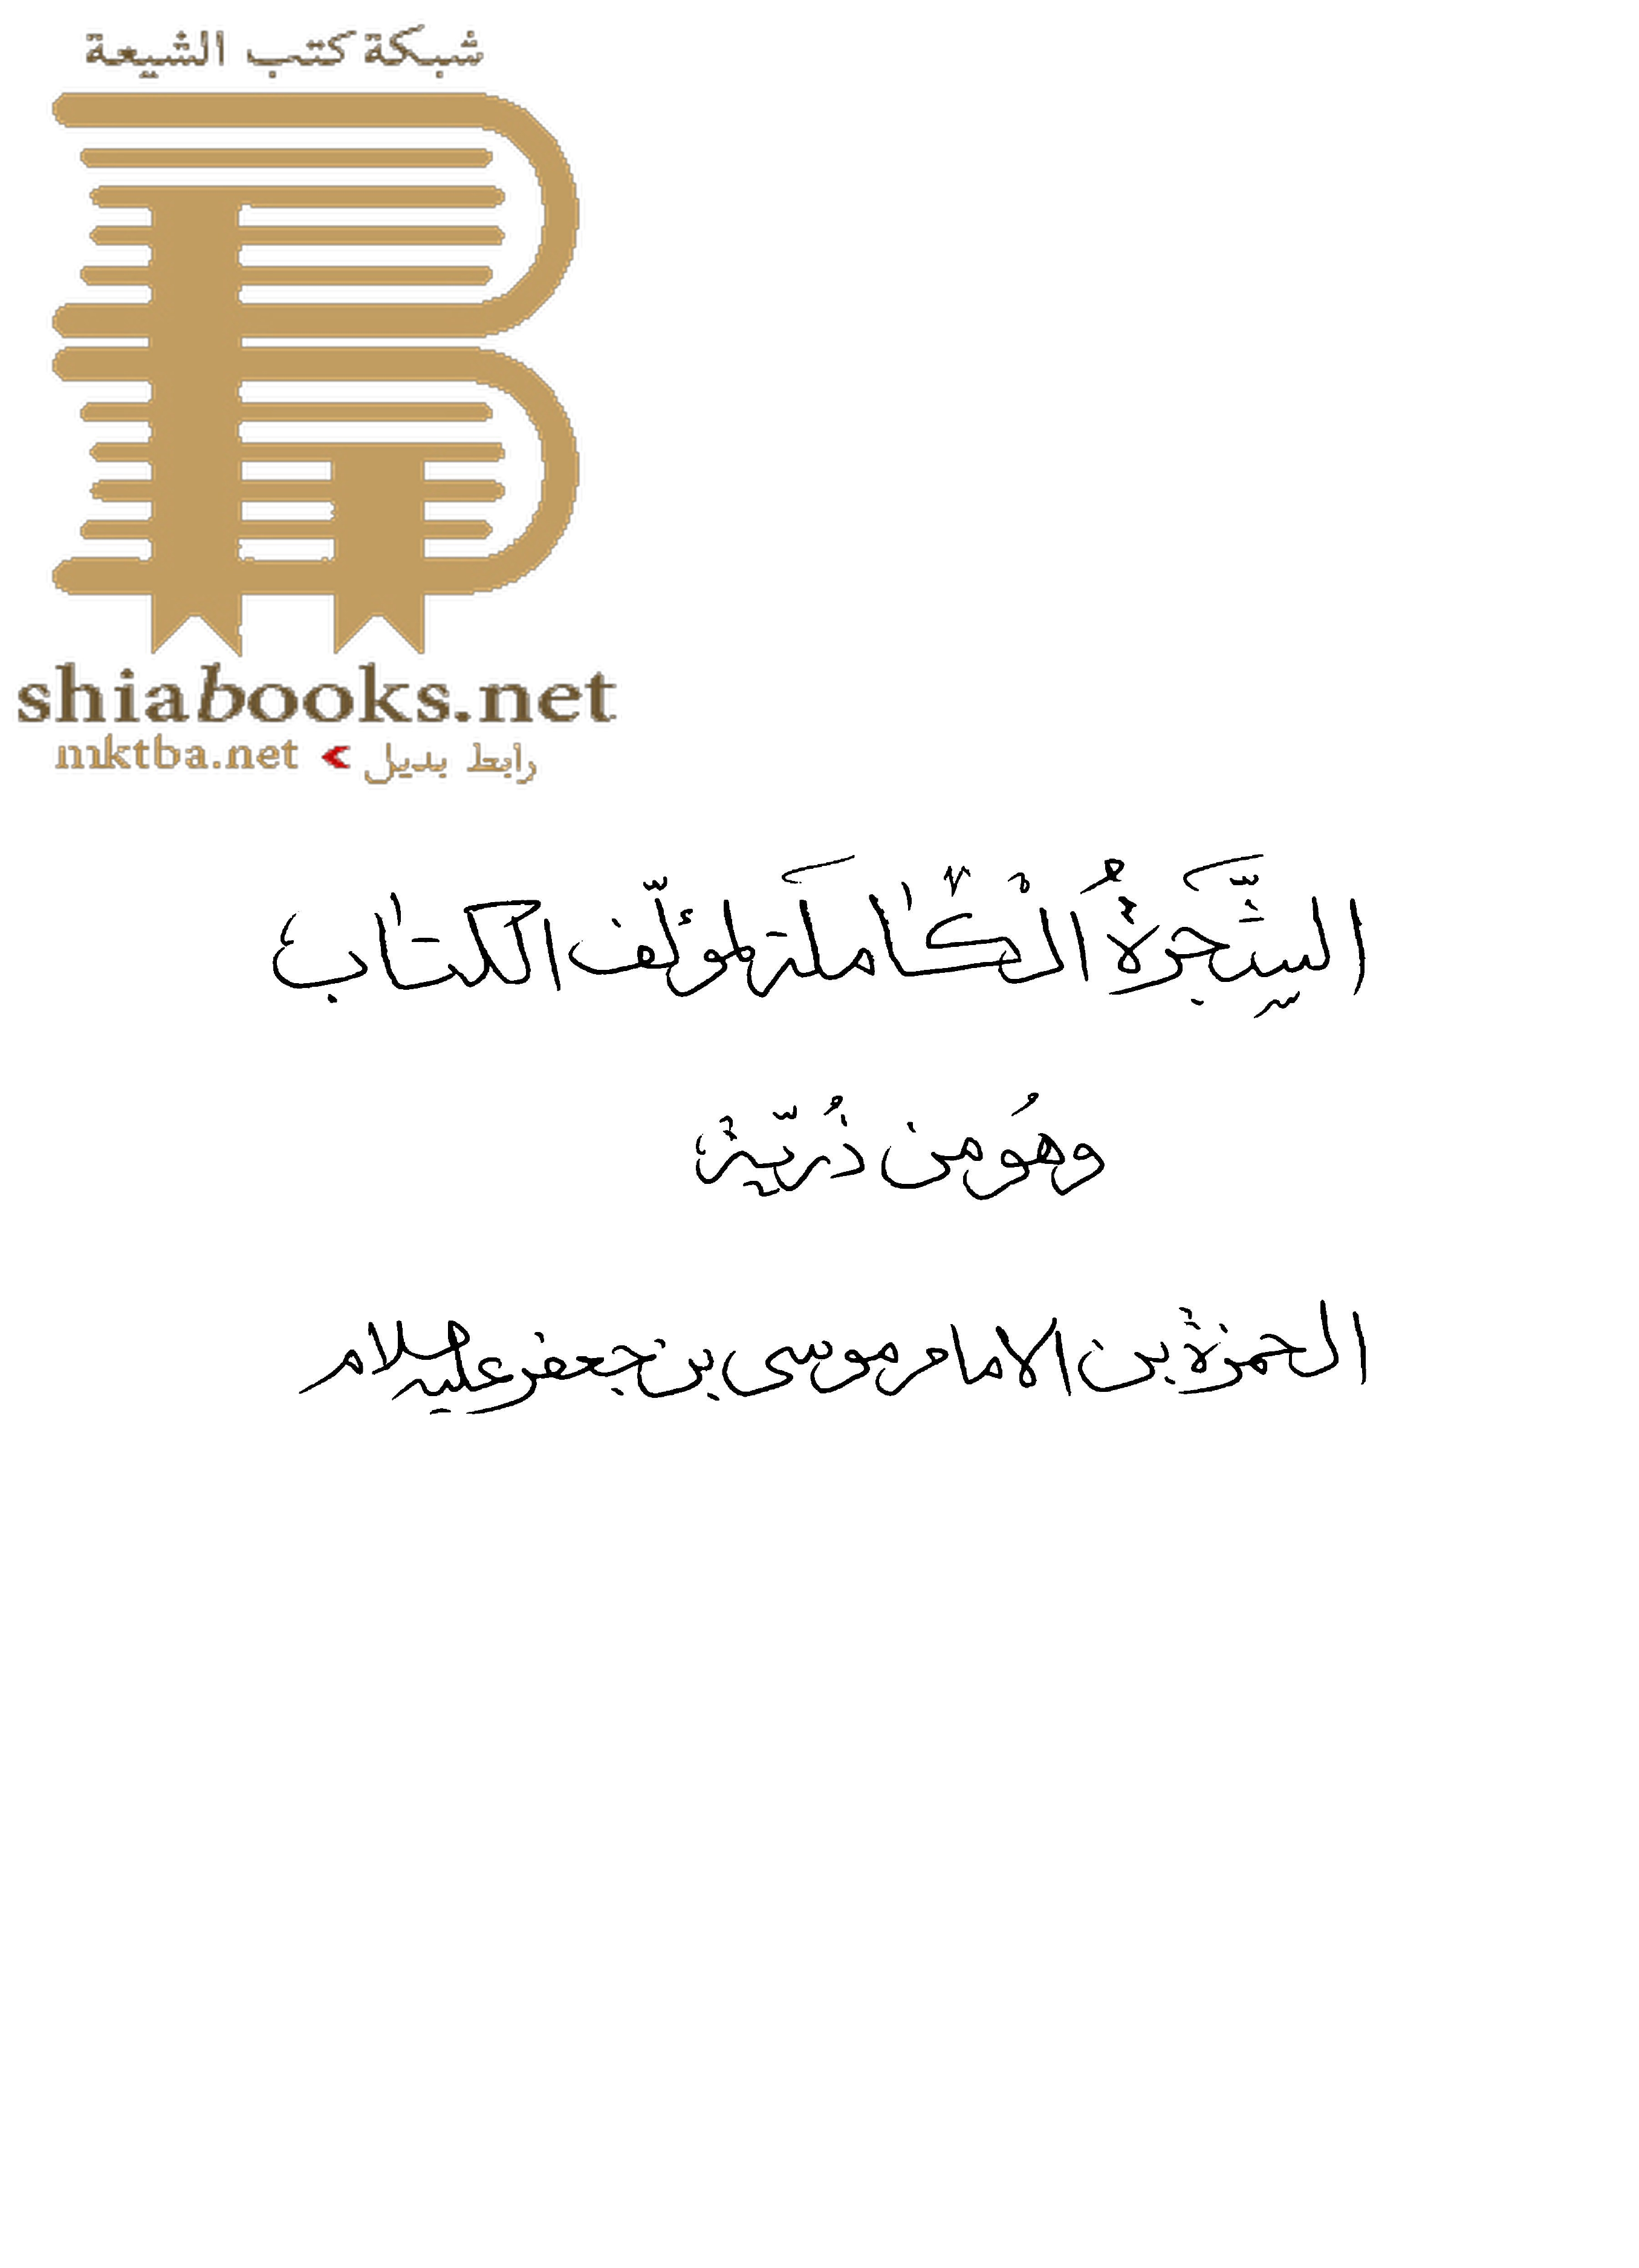 شبكة كتب الشيعة
shiabooks.net
mktba.net < رابط بديل
الشَّجَرَةُ الْكَامِلَة لمؤلّف الكتاب
وهُو من ذُرّيّة
الحمزة بن الامام موسى بن جعفر عليه السلام